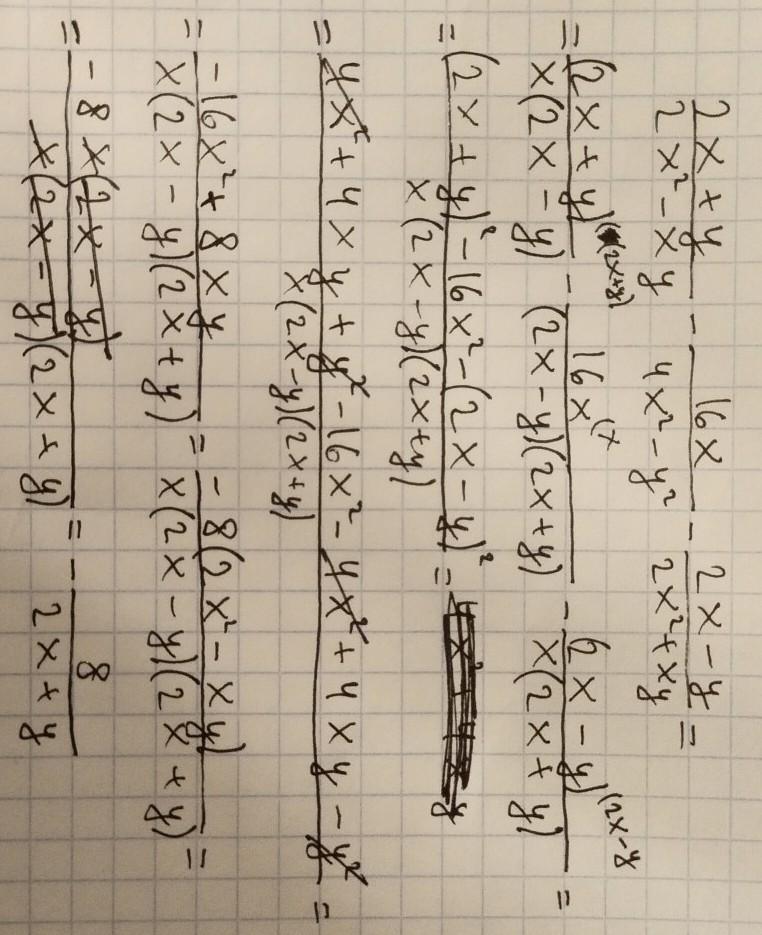 (2x+y)/(2x²-xy) - 16x/(4x²-y²) - (2x-y)/(2x²+xy) =
= (2x+y)^(2x+y)/(x(2x-y)) - 16x^(x)/((2x-y)(2x+y)) - (6x-y)^(2x-y)/(x(2x+y)) =
= ((2x+y)²-16x²-(2x-y)²)/(x(2x-y)(2x+y)) =
= (4x²+4xy+y²-16x²-4x²+4xy-y²)/(x(2x-y)(2x+y)) =
= (-16x²+8xy)/(x(2x-y)(2x+y)) = (-8(2x²-xy))/(x(2x-y)(2x+y)) =
= (-8x(2x-y))/(x(2x-y)(2x+y)) = - 8/(2x+y)